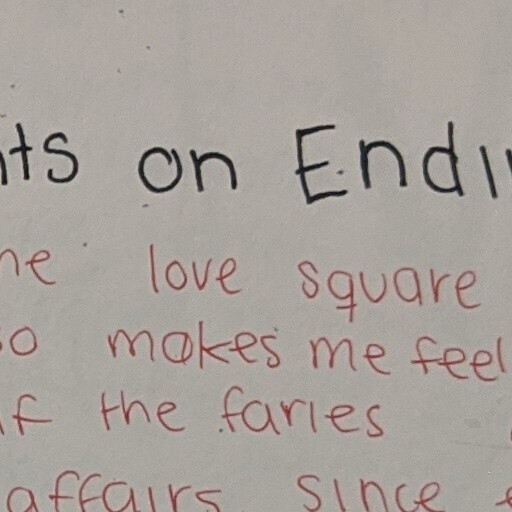 nts on Endin
he love square
so makes me feel
if the faries
affairs since